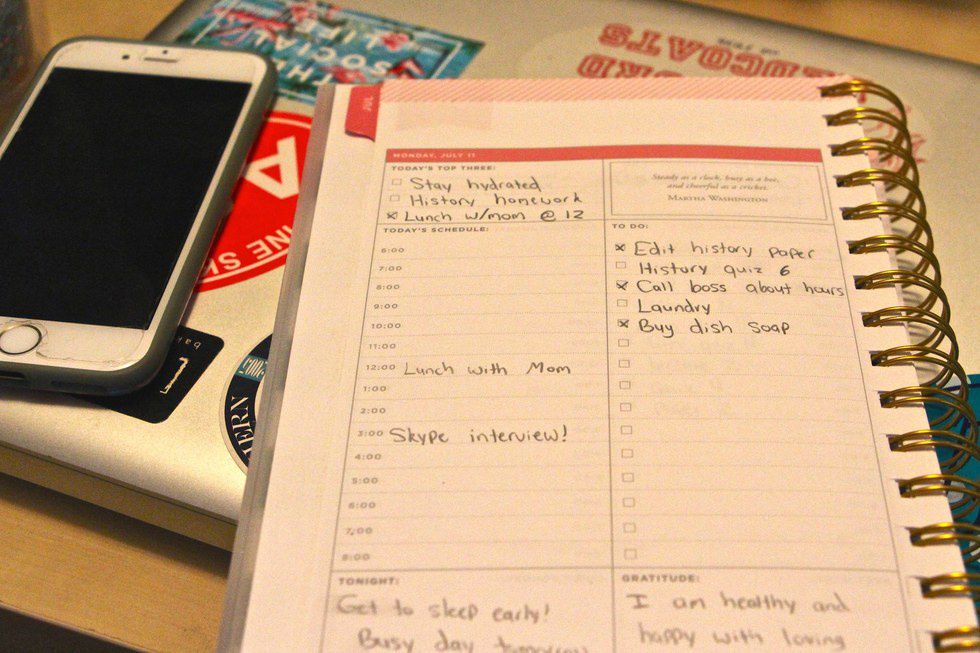 THE
SOCIAL
LIFE
JUL
MONDAY, JULY 11
TODAY'S TOP THREE:
Stay hydrated
History homework
Lunch w/mom @ 12
Steady as a clock, busy as a bee,
and cheerful as a cricket.
MARTHA WASHINGTON
TODAY'S SCHEDULE:
6:00
7:00
8:00
9:00
10:00
11:00
12:00 Lunch with Mom
1:00
2:00
3:00 Skype interview!
4:00
5:00
6:00
7:00
8:00
TO DO:
Edit history paper
History quiz 6
Call boss about hours
Laundry
Buy dish soap
TONIGHT:
Get to sleep early!
Busy day tomorrow
GRATITUDE:
I am healthy and
happy with loving
A